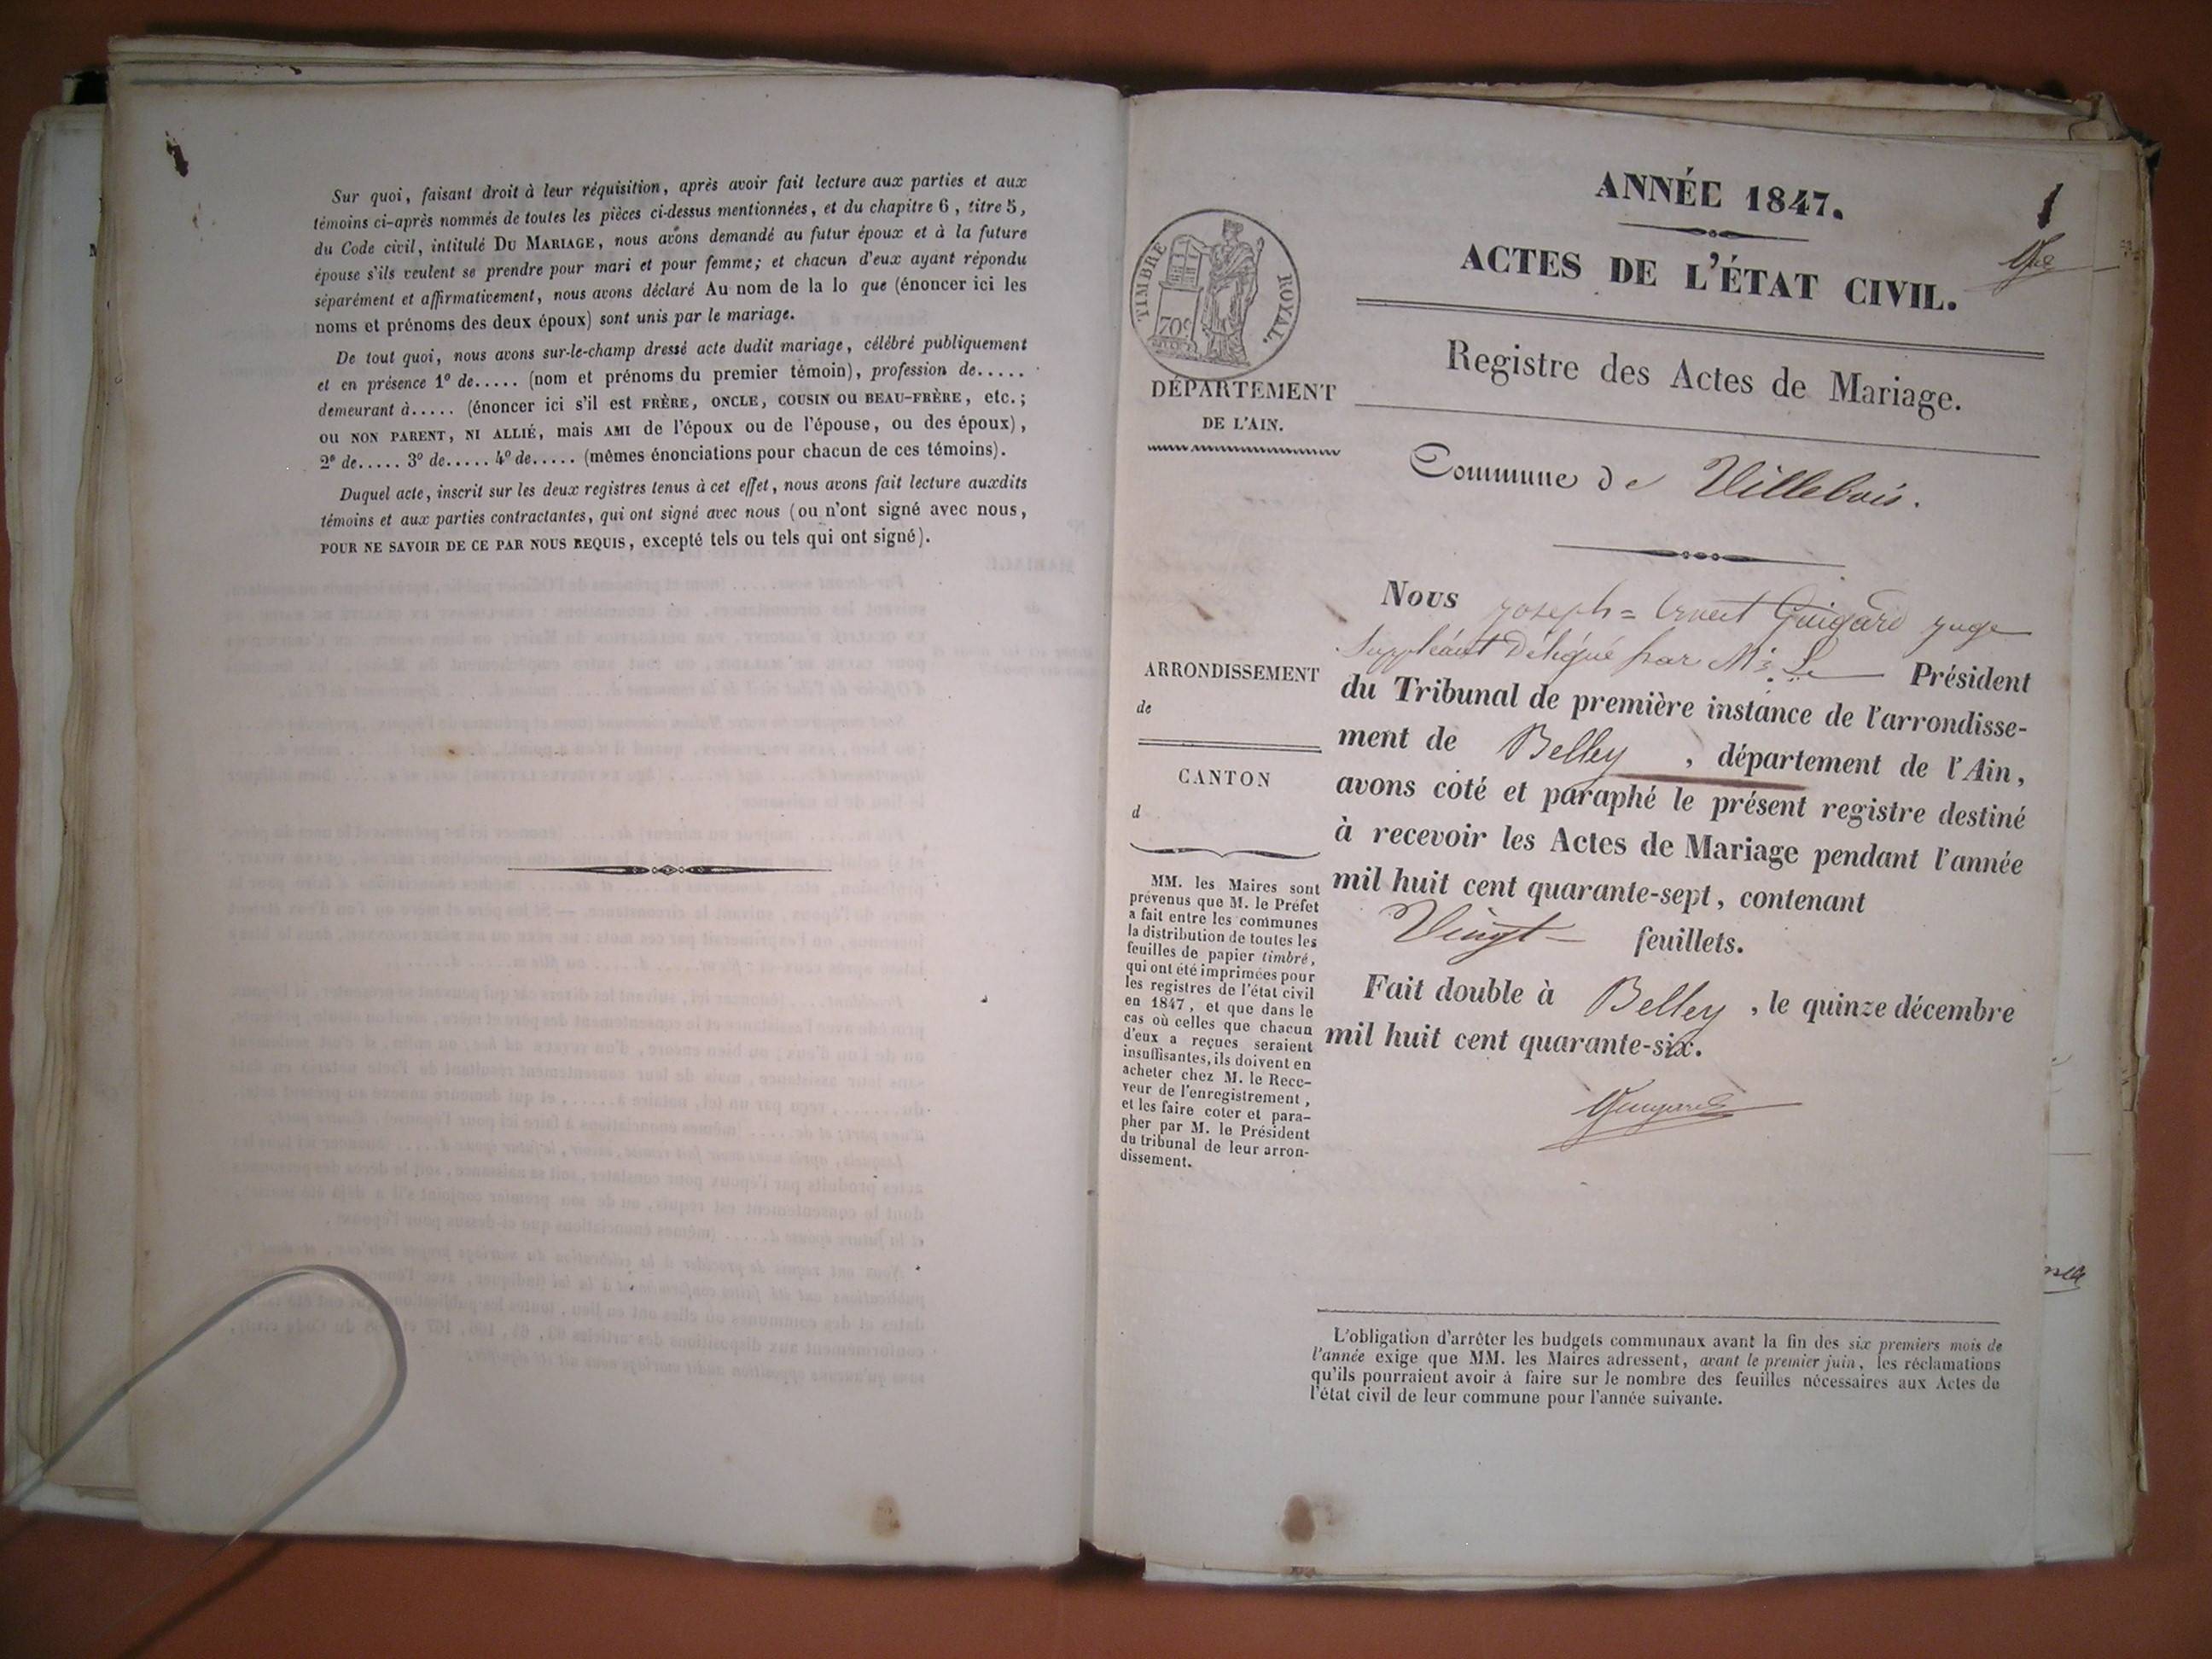 Sur quoi, faisant droit à leur réquisition, après avoir fait lecture aux parties et aux
témoins ci-après nommés de toutes les pièces ci-dessus mentionnées, et du chapitre 6, titre 5,
du Code civil, intitulé DU MARIAGE, nous avons demandé au futur époux et à la future
épouse s'ils veulent se prendre pour mari et pour femme; et chacun d'eux ayant répondu
séparément et affirmativement, nous avons déclaré Au nom de la lo que (énoncer ici les
noms et prénoms des deux époux) sont unis par le mariage.
De tout quoi, nous avons sur-le-champ dressé acte dudit mariage, célébré publiquement
et en présence 1º de..... (nom et prénoms du premier témoin), profession de.....
demeurant à..... (énoncer ici s'il est FRÈRE, ONCLE, COUSIN OU BEAU-FRÈRE, etc.;
ou NON PARENT, NI ALLIÉ, mais AMI de l'époux ou de l'épouse, ou des époux),
2º de..... 3º de..... 4º de..... (mêmes énonciations pour chacun de ces témoins).
Duquel acte, inscrit sur les deux registres tenus à cet effet, nous avons fait lecture auxdits
témoins et aux parties contractantes, qui ont signé avec nous (ou n'ont signé avec nous,
POUR NE SAVOIR DE CE PAR NOUS REQUIS, excepté tels ou tels qui ont signé).
1
ANNÉE 1847.
ACTES DE L'ÉTAT CIVIL.
TIMBRE ROYAL.
70c
DÉPARTEMENT
DE L'AIN.
Registre des Actes de Mariage.
Commune de Villebois.
Nous Joseph = Ernest Guigard juge
Suppléant Délégué par Mr Le Président
du Tribunal de première instance de l'arrondisse-
ment de Belley, département de l'Ain,
avons coté et paraphé le présent registre destiné
à recevoir les Actes de Mariage pendant l'année
mil huit cent quarante-sept, contenant
Vingt feuillets.
Fait double à Belley, le quinze décembre
mil huit cent quarante-six.
Guigard
ARRONDISSEMENT
de
CANTON
d
MM. les Maires sont
prévenus que M. le Préfet
a fait entre les communes
la distribution de toutes les
feuilles de papier timbré,
qui ont été imprimées pour
les registres de l'état civil
en 1847, et que dans le
cas où celles que chacun
d'eux a reçues seraient
insuffisantes, ils doivent en
acheter chez M. le Rece-
veur de l'enregistrement,
et les faire coter et para-
pher par M. le Président
du tribunal de leur arron-
dissement.
L'obligation d'arrêter les budgets communaux avant la fin des six premiers mois de
l'année exige que MM. les Maires adressent, avant le premier juin, les réclamations
qu'ils pourraient avoir à faire sur le nombre des feuilles nécessaires aux Actes de
l'état civil de leur commune pour l'année suivante.